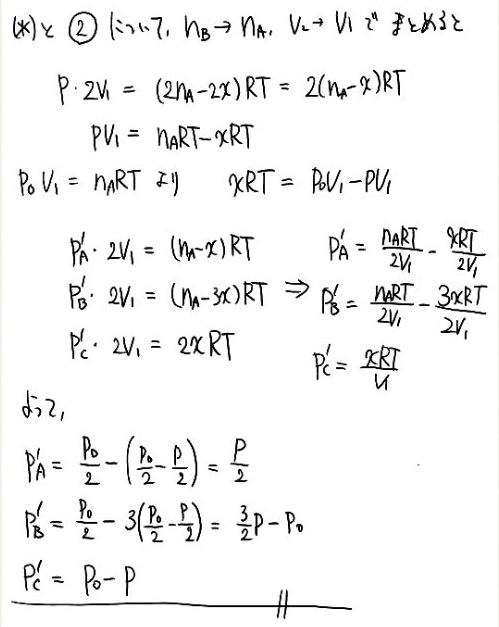 (*)と ② について, n_B → n_A, V₂ → V₁ で まとめると
P・2V₁ = (2n_A−2x)RT = 2(n_A−x)RT
PV₁ = n_ART−xRT
P₀V₁ = n_ART より xRT = P₀V₁−PV₁
P'_A・2V₁ = (n_A−x)RT
P'_B・2V₁ = (n_A−3x)RT ⇒
P'_C・2V₁ = 2xRT
P'_A = n_ART/2V₁ − xRT/2V₁
P'_B = n_ART/2V₁ − 3xRT/2V₁
P'_C = xRT/V₁
よって,
P'_A = P₀/2 − (P₀/2 − P/2) = P/2
P'_B = P₀/2 − 3(P₀/2 − P/2) = 3/2 P − P₀
P'_C = P₀ − P